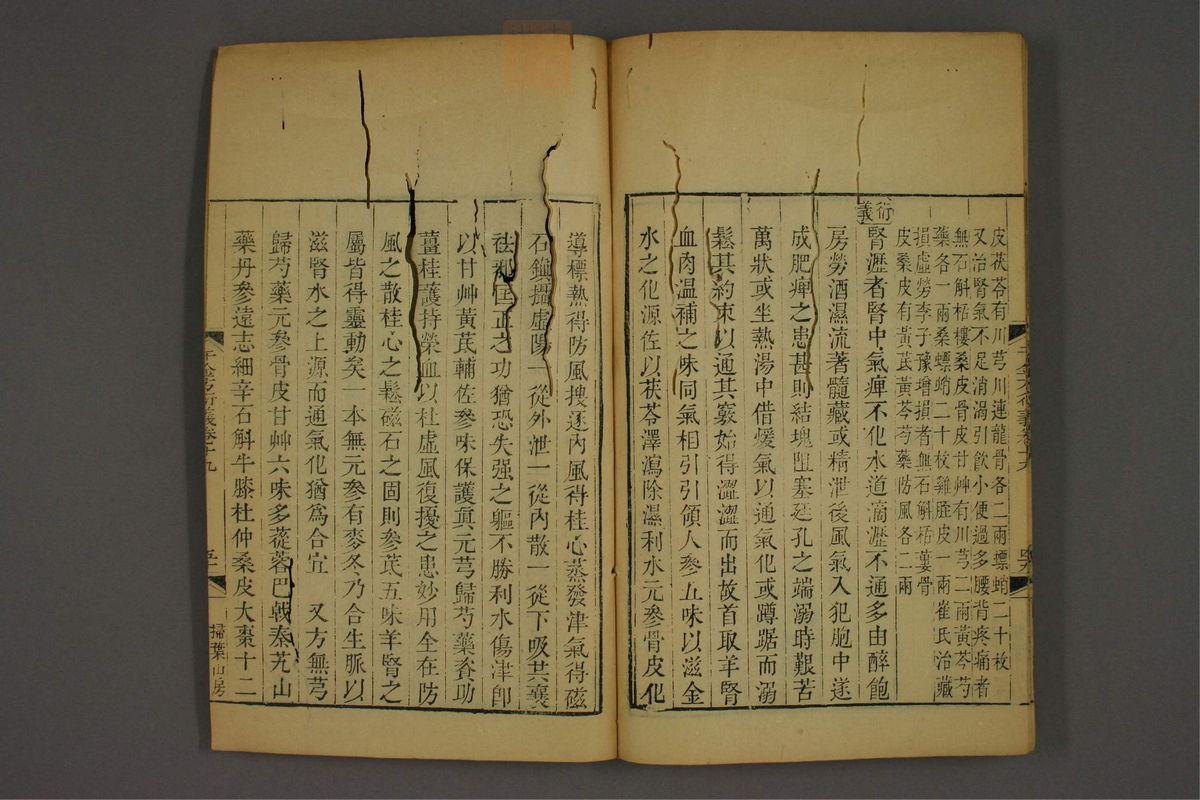 皮茯苓有川芎川連龍骨各二兩螵蛸二十枚
又治腎氣不足消渴引飲小便過多腰背疼痛者
無石斛栝樓桑皮骨皮甘艸有川芎二兩黃芩芍
藥各一兩桑螵蛸二十枚雞䏶皮一兩崔氏治藏
損虛勞李子豫增損者無石斛栝蔞骨
皮桑皮有黃芪黃芩芍藥防風各二兩
衍義
腎瀝者腎中氣痺不化水道滴瀝不通多由醉飽
房勞酒濕流著髓藏或精泄後風氣入犯胞中遂
成肥痺之患甚則結塊阻塞廷孔之端溺時艱苦
萬狀或坐熱湯中借煖氣以通氣化或蹲踞而溺
鬆其約束以通其竅始得澀澀而出故首取羊腎
血肉溫補之味同氣相引引領人參五味以滋金
水之化源佐以茯苓澤瀉除濕利水元參骨皮化
千金方衍義卷十九
導標熱得防風搜逐內風得桂心蒸發津氣得磁
石鎮攝虛陽一從外泄一從內散一從下吸共襄
祛邪匡正之功猶恐失强之軀不勝利水傷津卽
以甘艸黃芪輔佐參味保護眞元芎歸芍藥資功
薑桂護持榮血以杜虛風復擾之患妙用全在防
風之散桂心之鬆磁石之固則參芪五味羊腎之
屬皆得靈動矣一本無元參有麥冬乃合生脈以
滋腎水之上源而通氣化猶爲合宜　又方無芎
歸芍藥元參骨皮甘艸六味多蓯蓉巴戟秦艽山
藥丹參遠志細辛石斛牛膝杜仲桑皮大棗十二
千金方衍義卷十九
掃葉山房